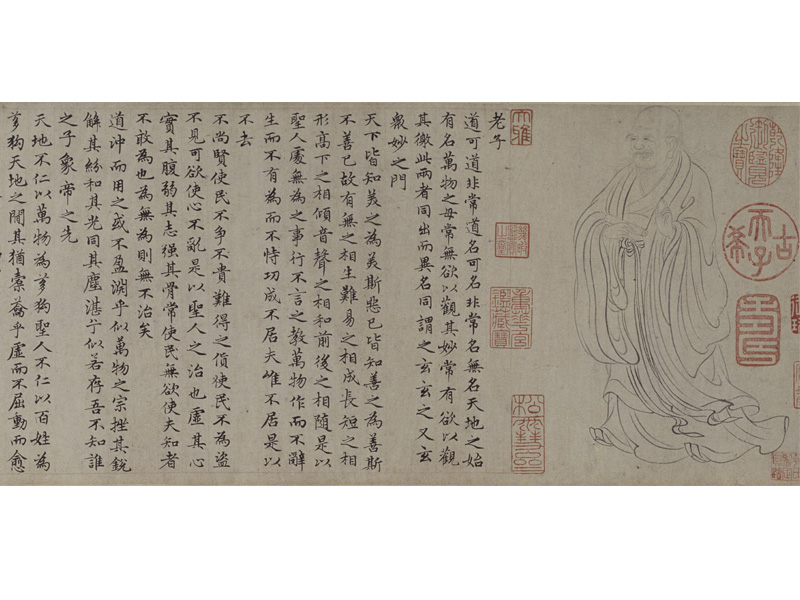 乾隆御覽之寶
古希天子
大雅
重華宮鑑藏寶
老子
道可道非常道名可名非常名無名天地之始
有名萬物之母常無欲以觀其妙常有欲以觀
其徼此兩者同出而異名同謂之玄玄之又玄
眾妙之門
天下皆知美之為美斯惡已皆知善之為善斯
不善已故有無之相生難易之相成長短之相
形高下之相傾音聲之相和前後之相隨是以
聖人處無為之事行不言之教萬物作而不辭
生而不有為而不恃功成不居夫唯不居是以
不去
不尚賢使民不爭不貴難得之貨使民不為盜
不見可欲使心不亂是以聖人之治也虛其心
實其腹弱其志强其骨常使民無欲使夫知者
不敢為也為無為則無不治矣
道沖而用之或不盈淵乎似萬物之宗挫其銳
解其紛和其光同其塵湛兮似若存吾不知誰
之子象帝之先
天地不仁以萬物為芻狗聖人不仁以百姓為
芻狗天地之間其猶橐籥乎虛而不屈動而愈